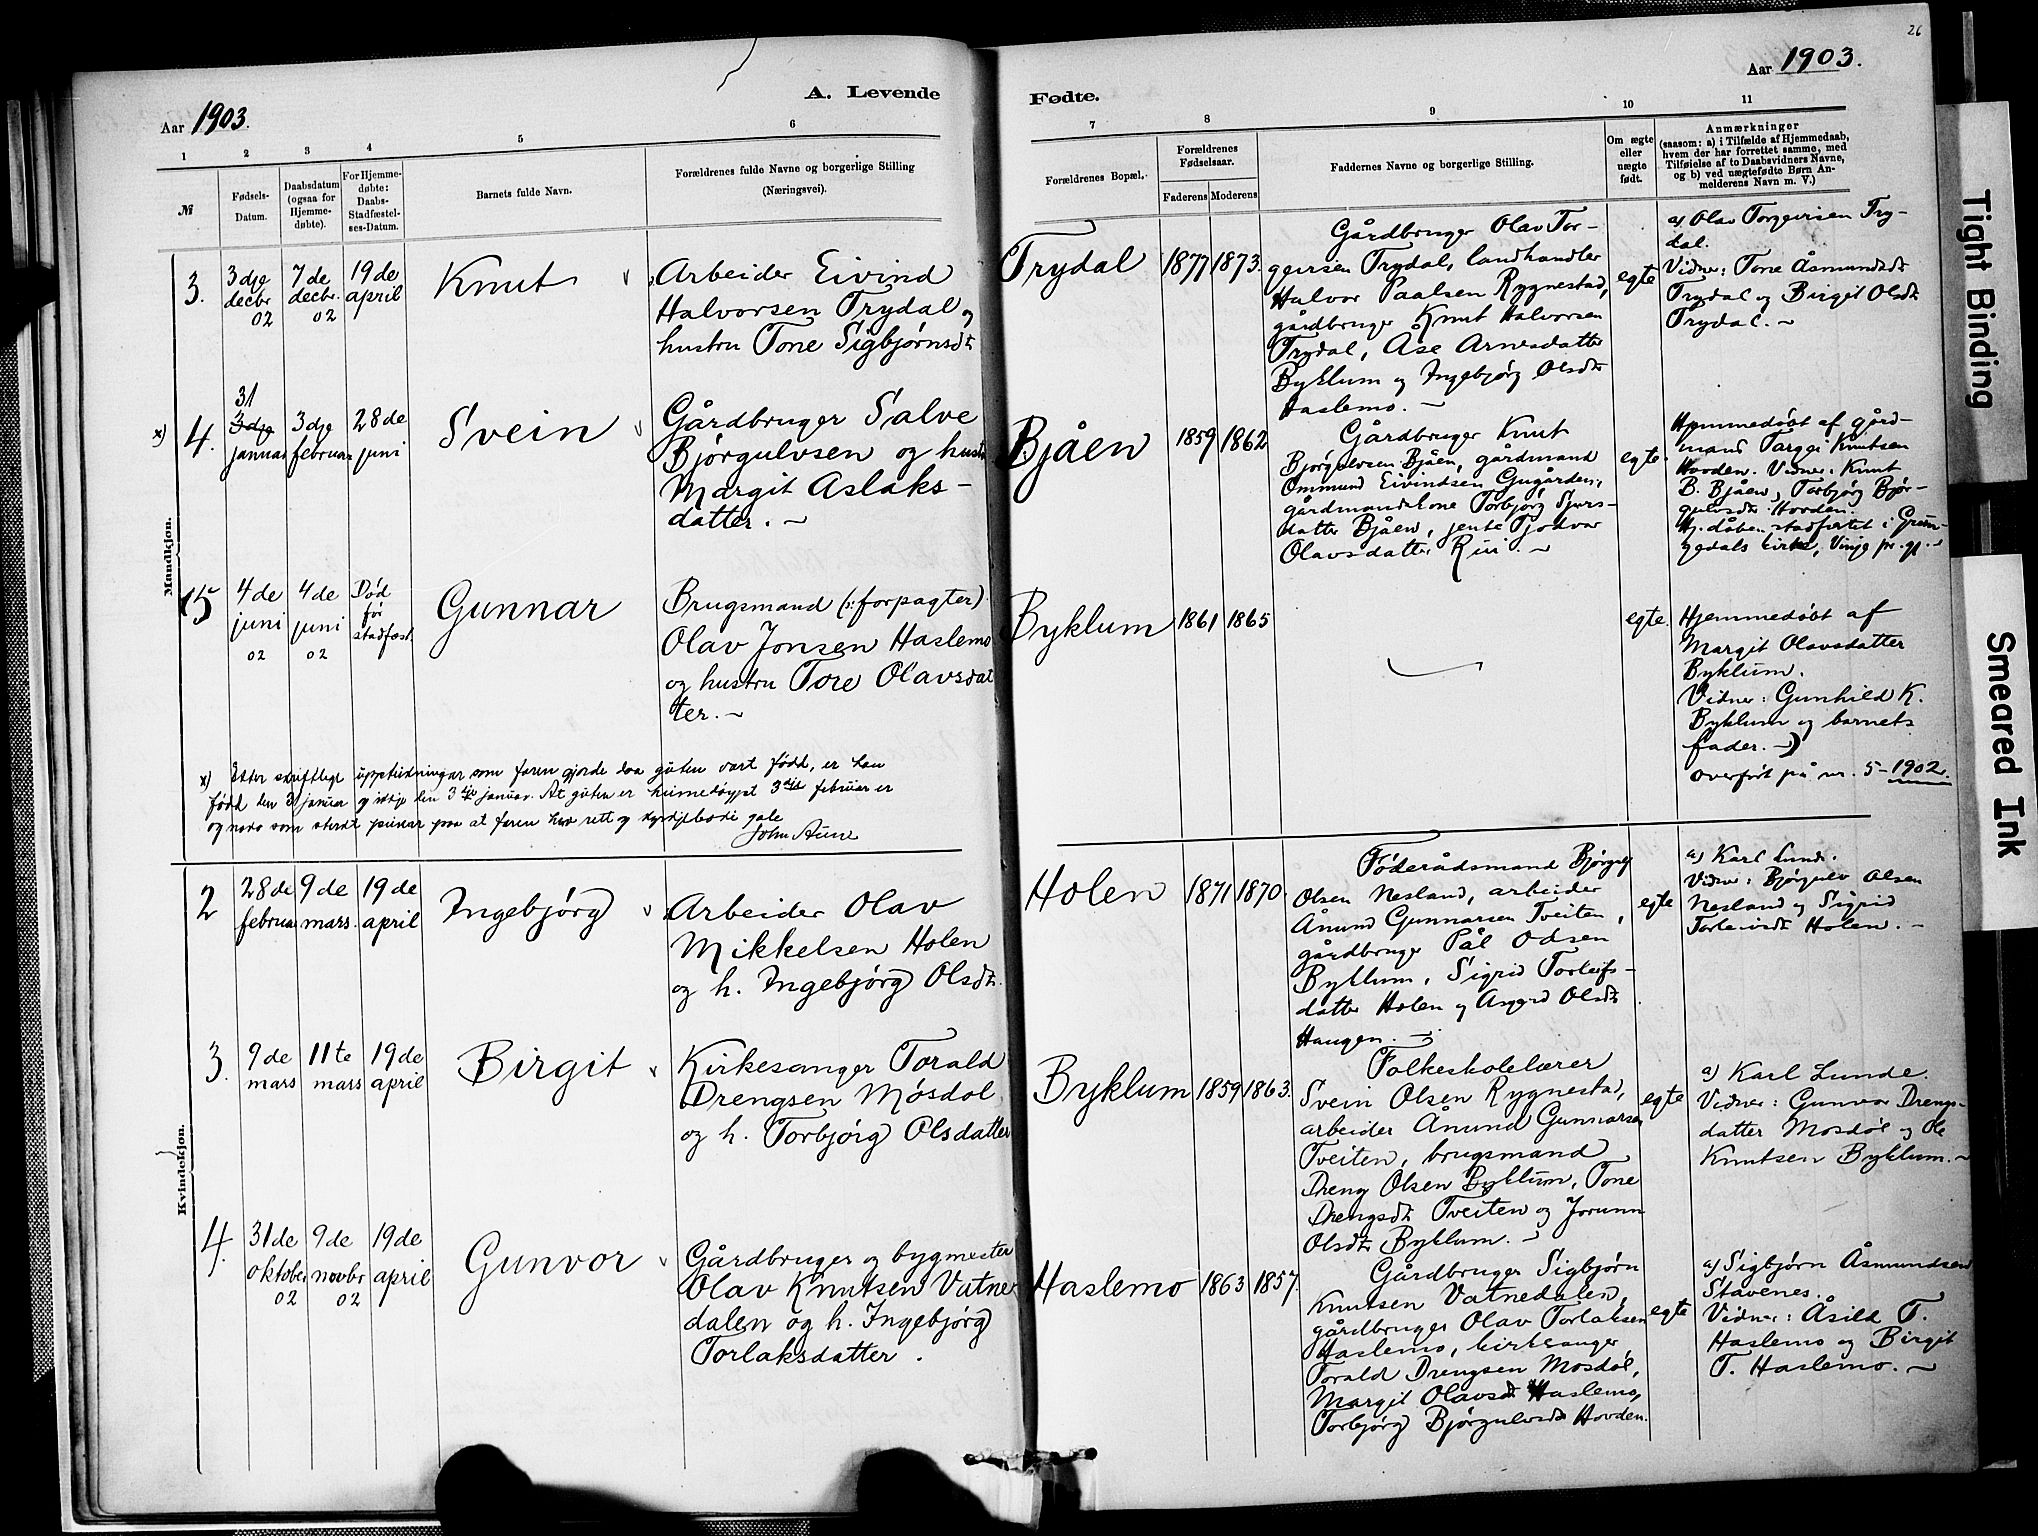 26
Aar 1903.
A. Levende
Fødte.
Aar 1903.
1 2 3 4 5 6
7 8 9 10 11
№
Fødsels-
Datum.
Daabsdatum
(ogsaa for
Hjemme-
døbte).
For Hjemme-
døbte:
Daabs-
Stadfæstel-
ses-Datum.
Barnets fulde Navn.
Forældrenes fulde Navne og borgerlige Stilling
(Næringsvei).
Forældrenes Bopæl.
Forældrenes
Fødselsaar.
Faderens Moderens
Faddernes Navne og borgerlige Stilling.
Om ægte
eller
uægte
født.
Anmærkninger
(saasom: a) i Tilfælde af Hjemmedaab,
hvem der har forrettet samme, med
Tilføielse af to Daabsvidners Navne,
og b) ved uægtefødte Børn An-
melderens Navn m. V.)
Mandkjøn.
3.
3dje
decbr
02
7de
decbr.
02
19de
april
Knut
Arbeider Eivind
Halvorsen Trydal og
hustru Tone Sigbjørnsdt
Trydal
1877
1873.
Gårdbruger Olav Tor-
geirsen Trydal, landhandler
Halvor Paalsen Rygnestad,
gårdbruger Knut Halvorsen
Trydal, Åse Arnesdatter
Byklum og Ingebjørg Olsdt
Haslemo. -
egte
a) Olav Torgeirsen Try-
dal.
Vidner: Tone Åsmundsdt
Trydal og Birgit Olsdt
Trydal. -
x)
4.
31
3dje
januar
3dje
februar
28de
juni
Svein
Gårdbruger Salve
Bjørgulvsen og hustru
Margit Aslaks-
datter. -
Bjåen
1859
1862
Gårdbruger Knut
Bjørgulvsen Bjåen, gårdmand
Ommund Eivindsen Gugården,
gårdmandskone Torbjørg Sjurs-
datter Bjåen, jente Tjodvor
Olavsdatter Rui. -
egte.
Hjemmedøbt af gård-
mand Targei Knutsen
Hovden. Vidner: Knut
B. Bjåen, Torbjørg Bjør-
gulvsdt. Hovden.
Hj.dåben stadfestet i Grun-
gedals kirke, Vinje pr.gj. -
15
4de
juni
02
4de
juni
02
Død
før
stadfæst.
Gunnar
Brugsmand (ɔ: forpagter)
Olav Jonsen Haslemo
og hustru Tore Olavsdat
ter. -
Byklum
1861
1865
egte.
Hjemmedøbt af
Margit Olavsdatter
Byklum.
Vidner: Gunhild K.
Byklum og barnets
fader. -)
overført på nr. 5 - 1902.
x) Etter skriftlege uppteikningar som faren gjorde daa guten vart fødd, er han
fødd den 31 januar og ikkje den 3dje januar. At guten er heimedøypt 3dje februar er
og noko som sterkt peikar paa at faren hev rett og kyrkjebodi gale
John Aune
Kvindekjøn.
2
28de
februar
9de
mars.
19de
april
Ingebjørg
Arbeider Olav
Mikkelsen Holen
og h. Ingebjørg Olsdt.
Holen
1871
1870
Føderådsmand Bjørgulv
Olsen Nesland, arbeider
Ånund Gunnarsen Tveiten,
gårdbruger Pål Odsen
Byklum, Sigrid Torleifs-
datter Holen og Asgerd Olsdt
Haugen. -
egte
a) Karl Lunde.
Vidner: Bjørgulv Olsen
Nesland og Sigrid
Torleivsdt Holen. -
3.
9de
mars
11te
mars
19de
april
Birgit
Kirkesanger Torald
Drengsen Mosdøl
og h. Torbjørg Olsdatter
Byklum
1859
1863.
Folkeskolelærer
Svein Olsen Rygnestad,
arbeider Ånund Gunnarsen
Tveiten, brugsmand
Dreng Olsen Byklum, Tone
Drengsdt Tveiten og Jorunn
Olsdt Byklum. -
egte
a) Karl Lunde.
Vidner: Gunvor Drengs-
datter Mosdøl og Ole
Knutsen Byklum. -
4.
31de
oktober
02
9de
novbr
02
19de
april
Gunvor
Gårdbruger og bygmester
Olav Knutsen Vatne
dalen og h. Ingebjørg
Torlaksdatter.
Haslemo
1863
1857.
Gårdbruger Sigbjørn
Knutsen Vatnedalen,
gårdbruger Olav Torlaksen
Haslemo, kirkesanger
Torald Drengsen Mosdøl,
Margit Olavsdt Haslemo,
Torbjørg Bjørgulvsdt Hovden.
egte
a) Sigbjørn Åsmundsen
Stavenes.
Vidner: Åsild T.
Haslemo og Birgit
T. Haslemo. -
Tight Binding
Smeared Ink